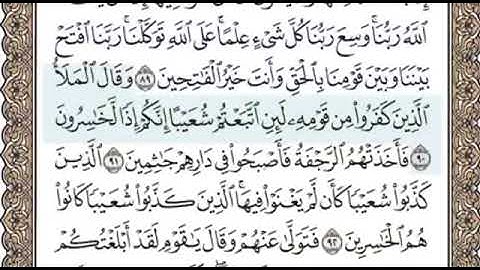 ٱللَّهُ رَبُّنَا ۚ وَسِعَ رَبُّنَا كُلَّ شَىْءٍ عِلْمًا ۚ عَلَى ٱللَّهِ تَوَكَّلْنَا ۚ رَبَّنَا ٱفْتَحْ
بَيْنَنَا وَبَيْنَ قَوْمِنَا بِٱلْحَقِّ وَأَنتَ خَيْرُ ٱلْفَـٰتِحِينَ ٨٩ وَقَالَ ٱلْمَلَأُ
ٱلَّذِينَ كَفَرُوا۟ مِن قَوْمِهِۦ لَئِنِ ٱتَّبَعْتُمْ شُعَيْبًا إِنَّكُمْ إِذًا لَّخَـٰسِرُونَ
٩٠ فَأَخَذَتْهُمُ ٱلرَّجْفَةُ فَأَصْبَحُوا۟ فِى دَارِهِمْ جَـٰثِمِينَ ٩١ ٱلَّذِينَ
كَذَّبُوا۟ شُعَيْبًا كَأَن لَّمْ يَغْنَوْا۟ فِيهَا ۚ ٱلَّذِينَ كَذَّبُوا۟ شُعَيْبًا كَانُوا۟
هُمُ ٱلْخَـٰسِرِينَ ٩٢ فَتَوَلَّىٰ عَنْهُمْ وَقَالَ يَـٰقَوْمِ لَقَدْ أَبْلَغْتُكُمْ